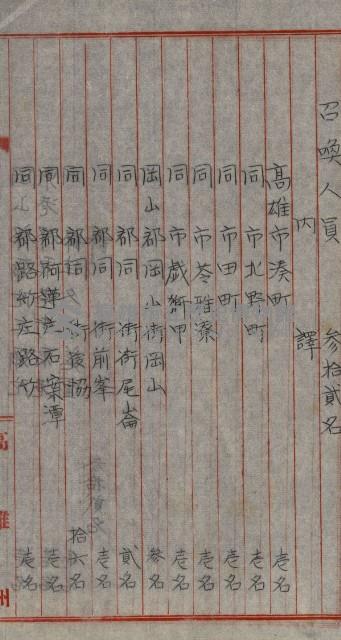 召喚人員 參拾貳名
內譯
高雄市湊町 壱名
同 市北野町 壱名
同 市田町 壱名
同 市苓雅寮 壱名
同 市戲獅甲 壱名
岡山郡岡山街岡山 參名
同 郡同 街街尾崙 貳名
同 郡同 街前峯 壱名
同 郡同 街後協 拾六名
同 郡阿蓮庄石案潭 壱名
同 郡路竹庄路竹 壱名
高雄州